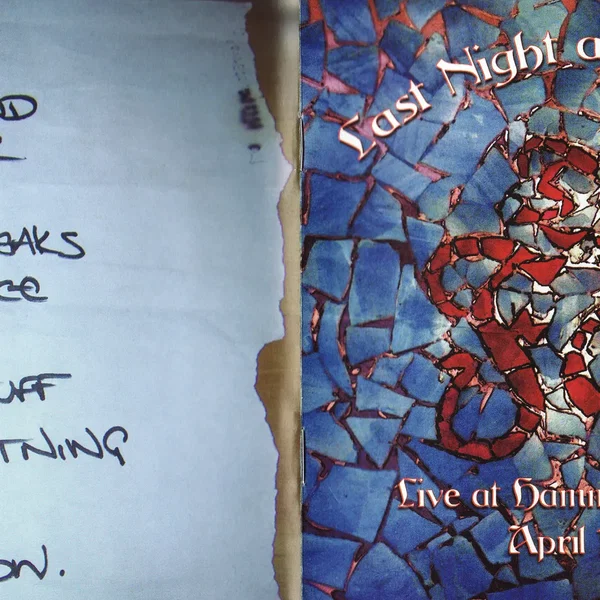 EAKS
CE
UFF
TNING
ON.
Last Night a
Live at Hamm
April